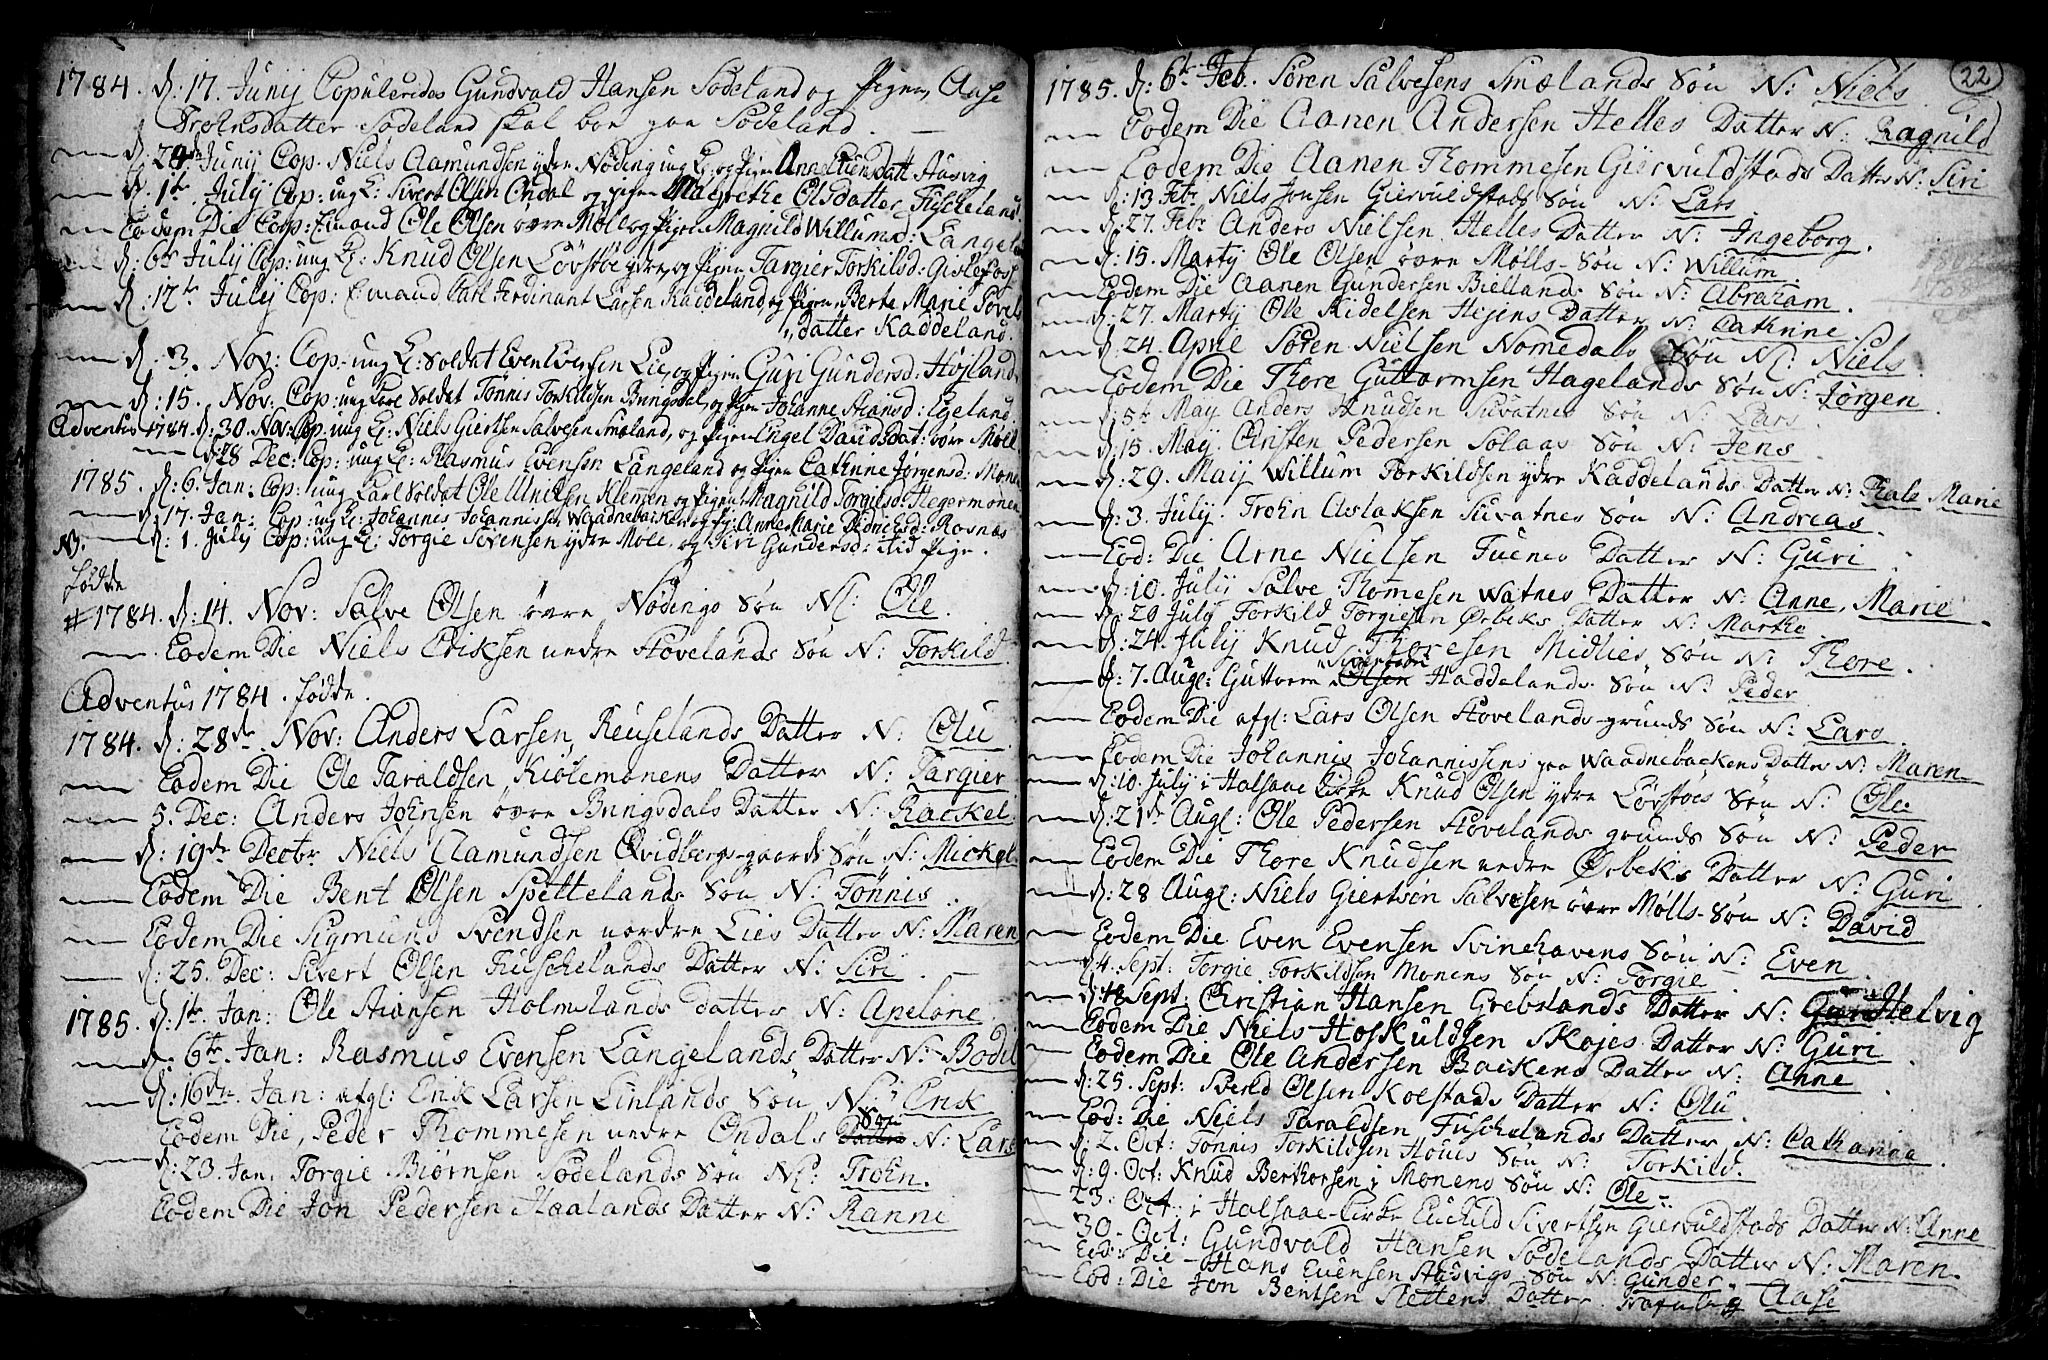 1784. d: 17. Junij Copuleredes Gundvald Hansen Sødeland og Pigen Aase
Trohnsdatter Sødeland skal boe paa Sødeland.
d: 29de Junij Cop. Niels Aamundsen ydre Nøding ung K: og Pigen Anne Datt Ausvig
d. 1te July Cop: ung K: Sivert Olsen Øndal og Pigen Margrethe Olsdatter Fuscheland.
Eodem Die Cop: Emand Ole Olsen øvre Møll og Pigen Magnild Willumsd: Langel
d: 6te July Cop: ung K: Knud Olsen Løvstøe ydre, og Pigen Targier Torkilsd: Gislefos
d: 17de July Cop: Emand Carl Ferdinant Larsen Kaddeland, og Pigen Berte Marie
datter Kaddeland.
d: 3. Nov: Cop: ung K: Soldat Even Evensen Lie, og Pigen Guri Gundersd: Højland
d: 15. Nov: Cop: ung Karl Soldat Tønnis Torkildsen Bringsdal, og Pigen Johanne Arian'sd: Egeland
Adventus 1784. d: 30. Nov: Cop: ung K: Niels Giertsen Salvesen Smæland, og Pigen Engel Davidsdat: øvre Møll
d: 28 Dec: Cop: ung K: Rasmus Evensen Langeland og Pigen Cathrine Jørgensd: Monen
1785. d: 6. Jan: Cop: ung Karl Soldat Ole Nielsen Klemmen og Pigen Magnild Torgilsd: Hegermonen
d: 17. Jan: Cop: ung K: Johannis Johannissen Waadnebacken og P: Anne Marie Rosnæs
NB. d: 1. July Cop: ung K: Torgie Sivensen ydre Møll, og Siri Gundersd: ibid Pige.
fødde
# 1784. d: 14. Nov: Salve Olsen øvre Nødings Søn N: Ole.
Eodem Die Niels Eriksen nedre Stovelands Søn N: Torkild
Adventus 1784. fødde.
1784. d: 28de Nov: Anders Larsen Reuselands Datter N: Olu
Eodem Die Ole Taraldsen Kiølemonens Datter N: Targier
5. Dec: Anders Johnsen øvre Bringsdals Datter N: Rackel.
d: 19de Decbr Niels Aamundsen Qvidbergs-gaards Søn N: Mickel
Eodem Die Bent Olsen Spettelands Søn N: Tønnis
Eodem Die Sigmund Svendsen nordre Lies Datter N: Maren
d: 25. Dec: Sivert Olsen Fuschelands Datter N: Siri
1785. d: 1te Jan: Ole Ariansen Holmelands datter N: Apelone
d: 6te Jan: Rasmus Evensen Langelands Datter N: Bodil
d: 16de Jan: afgl: Erik Larsen Linlands Søn N: Erik
Eodem Die, Peder Thommesen nedre Øndals Datter Søn N: Lars
d: 23. Jan. Torgie Biørnsen Sødelands Søn N: Trohn.
Eodem Die Jon Pedersen Haalands Datter N: Ranni
22
1785. d: 6te Feb. Søren Salvesens Smælands Søn N: Niels
Eodem Die Aanen Andersen Helles Datter N: Ragnild
Eodem Die Aanen Thommesen Giervuldstads Datter N: Siri
d: 13 Feb: Niels Jonsen Giervuldstads Søn N: Lars
d: 27. Feb: Anders Nielsen Helles Datter N: Ingeborg.
d: 15. Martij Ole Olsen øvre Mølls Søn N: Willum.
Eodem Die Aanen Gundersen Biellands Søn N: Abraham.
d: 27. Martij Ole Ridelsen Hejens Datter N: Cathrine.
d: 24. April Søren Nielsen Nomedals Søn N: Niels
Eodem Die Thore Guttormsen Hagelands Søn N: Jørgen
d: 5te May Anders Knudsen Suvatnes Søn N: Lars
d: 15. May. Christen Pedersen Solaas Søn N: Jens
d: 29. Maij Willum Torkildsen ydre Kaddelands Datter N: Thale Marie
d: 3. July. Trohn Aslaksen Suvatnes Søn N: Andreas.
Eod: Die Arne Nielsen Tuenes Datter N: Guri
d: 10. Julij Salve Thomesen Watnes Datter N: Anne Marie
d: 20 July Torkild Torgiesen Ørbeks Datter N: Marthe
d: 24. Julij Knud Thoresen Midlies Søn N: Thore.
d: 7. Augl: Guttorm Olsen Haddelands Søn N: Peder
Eodem Die afgl: Lars Olsen Stovelands-grunds Søn N: Lars
Eodem Die Johannis Johannissens paa Waadnebackens Datter N: Maren
d: 10. July i Halsaae Kirke Knud Olsen ydre Løvstøes Søn N: Ole
d: 21de Augl: Ole Pedersen Stovelands grunds Søn N: Peder
Eodem Die Thore Knudsen nedre Ørbeks Datter N: Guri
d: 28 Augl: Niels Giertsen Salvesen øvre Mølls-Søn N: David
Eodem Die Even Evensen Svinehavens Søn N: Even
d 4. Sept: Torgie Torkildsen Monens Søn N: Torgie
d: 18 Sept: Christian Hansen Grebslands Datter N: Helvig
Eodem Die Niels Hoskuldsen Skojes Datter N: Guri
Eodem Die Ole Andersen Backens Datter N: Anne
d: 25. Sept: Svend Olsen Kolstads Datter N: Olu
Eod: Die Niels Taraldsen Fuschelands Datter N: Catharina
d: 2. Oct: Tønnis Torkildsen Houes Søn N: Torkild.
d: 9. Oct: Knud Berthorsen i Monens Søn N: Ole.
23: Oct. i Halsaae-Kirke Euchild Sivertsen Giervuldstads Datter N: Anne
30. Oct: Gundvald Hansen Sødelands Datter N: Maren.
Eod: Die Hans Evensen Ausvigs Søn N: Gunder.
Eod: Die Jon Bentsen Slettens Datter Aase